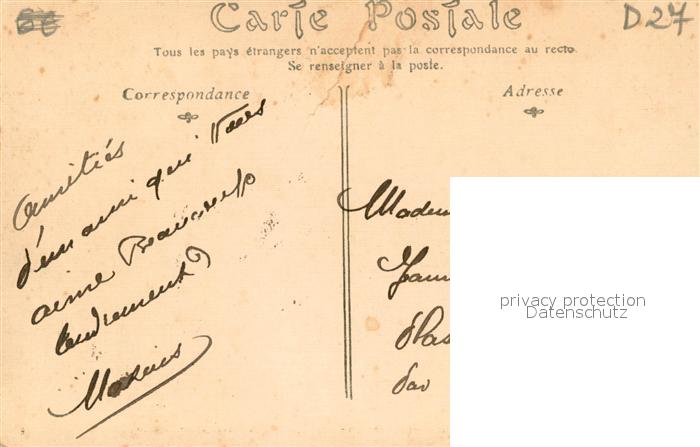 Carte Postale
D27
Tous les pays étrangers n'acceptent pas la correspondance au recto.
Se renseigner à la poste.
Correspondance
Adresse
Amitiés
d'un ami qui vous
aime Beaucoup
tendrement
Madem
d'las
par
privacy protection
Datenschutz